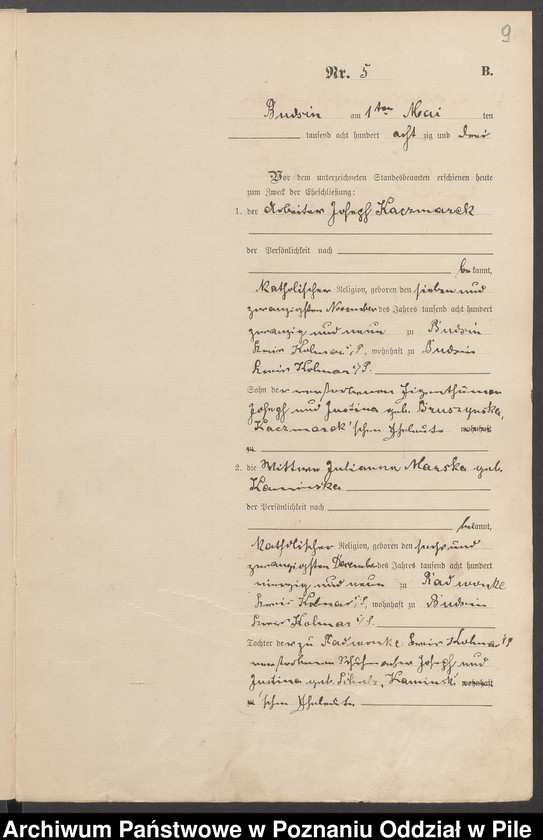 9
Nr. 5 B.
Budsin am 1ten Mai ten
tausend acht hundert acht zig und drei
Vor dem unterzeichneten Standesbeamten erschienen heute
zum Zweck der Eheschließung:
1. der Arbeiter Joseph Kaczmarek
der Persönlichkeit nach
bekannt,
katholischer Religion, geboren den sieben und
zwanzigsten November des Jahres tausend acht hundert
zwanzig und neun zu Budsin
Kreis Kolmar i/P., wohnhaft zu Budsin
Kreis Kolmar i/P.
Sohn der verstorbenen Eigenthümer
Joseph und Justina geb.
Kaczmarek'schen Eheleute wohnhaft
zu
2. die Wittwe Julianna Marska geb.
Kaminska
der Persönlichkeit nach
bekannt,
katholischer Religion, geboren den sechs und
zwanzigsten December des Jahres tausend acht hundert
vierzig und neun zu Radwonke
Kreis Kolmar i/P., wohnhaft zu Budsin
Kreis Kolmar i/P.
Tochter der zu Radwonke Kreis Kolmar i/P
verstorbenen Schuhmacher Joseph und
Justina geb. Kaminski wohnhaft
zu 'schen Eheleute.
Archiwum Państwowe w Poznaniu Oddział w Pile